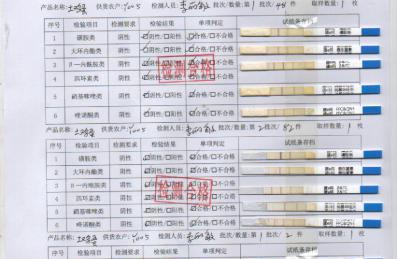 产品名称: 土鸡蛋 供货农户: Y005 检测人员: 批次/数量: 第1批次/48件 取样数量: 1枚
序号 检验项目 检测要求 检验结果 单项判定 试纸条存档
1 磺胺类 阴性 ☑阴性/☐阳性 ☑合格/☐不合格
2 大环内酯类 阴性 ☑阴性/☐阳性 ☑合格/☐不合格
3 β一内酰胺类 阴性 ☑阴性/☐阳性 ☑合格/☐不合格
4 四环素类 阴性 ☑阴性/☐阳性 ☑合格/☐不合格
5 硝基咪唑类 阴性 ☑阴性/☐阳性 ☑合格/☐不合格
6 喹诺酮类 阴性 ☑阴性/☐阳性 ☑合格/☐不合格
检测合格
产品名称: 土鸡蛋 供货农户: Y005 检测人员: 批次/数量: 第2批次/52件 取样数量: 1枚
1 磺胺类 阴性 ☑阴性/☐阳性 ☑合格/☐不合格
2 大环内酯类 阴性 ☑阴性/☐阳性 ☑合格/☐不合格
3 β一内酰胺类 阴性 ☑阴性/☐阳性 ☑合格/☐不合格
4 四环素类 阴性 ☑阴性/☐阳性 ☑合格/☐不合格
5 硝基咪唑类 阴性 ☑阴性/☐阳性 ☑合格/☐不合格
6 喹诺酮类 阴性 ☑阴性/☐阳性 ☑合格/☐不合格
检测合格
产品名称: 土鸡蛋 供货农户: Y005 检测人员: 批次/数量: 第1批次/2件 取样数量: 1枚
序号 检验项目 检测要求 检验结果 单项判定 试纸条存档